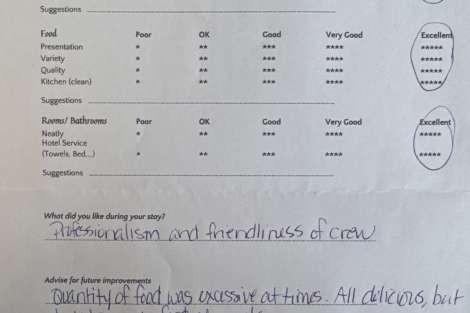 Suggestions
Food Poor OK Good Very Good Excellent
Presentation * ** *** **** *****
Variety * ** *** **** *****
Quality * ** *** **** *****
Kitchen (clean) * ** *** **** *****
Suggestions
Rooms/ Bathrooms Poor OK Good Very Good Excellent
Neatly * ** *** **** *****
Hotel Service
(Towels, Bed,...) * ** *** **** *****
Suggestions
What did you like during your stay?
Professionalism and friendliness of crew
Advise for future improvements
Quantity of food was excessive at times. All delicious, but